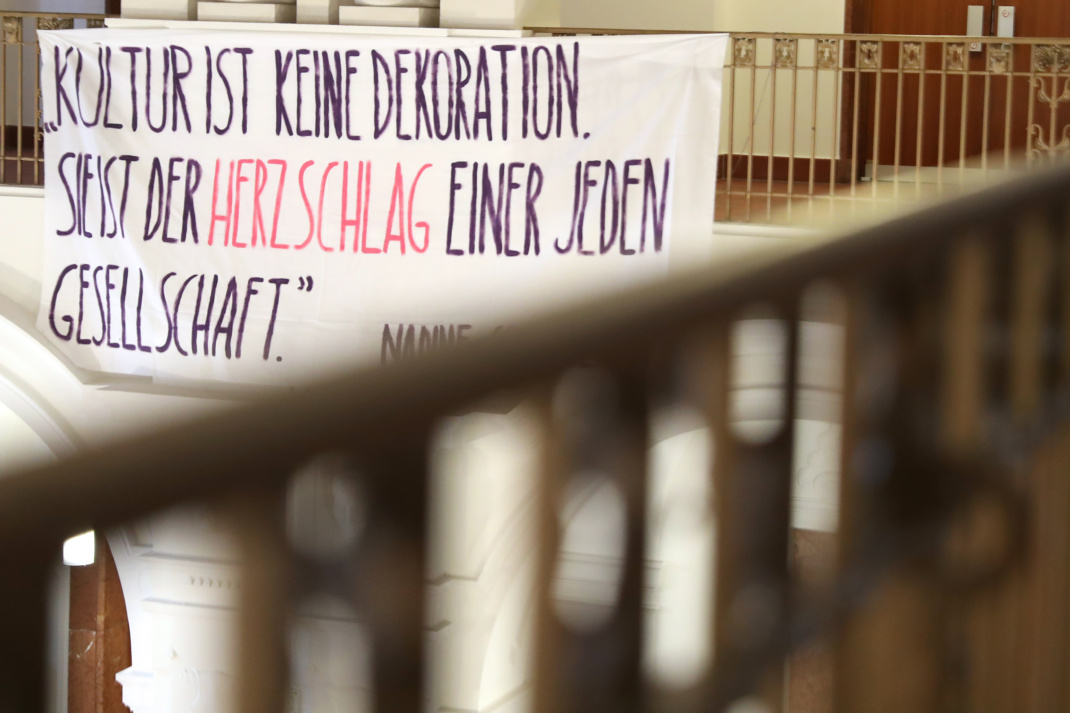 „KULTUR IST KEINE DEKORATION.
SIE IST DER HERZSCHLAG EINER JEDEN
GESELLSCHAFT.”
NADINE